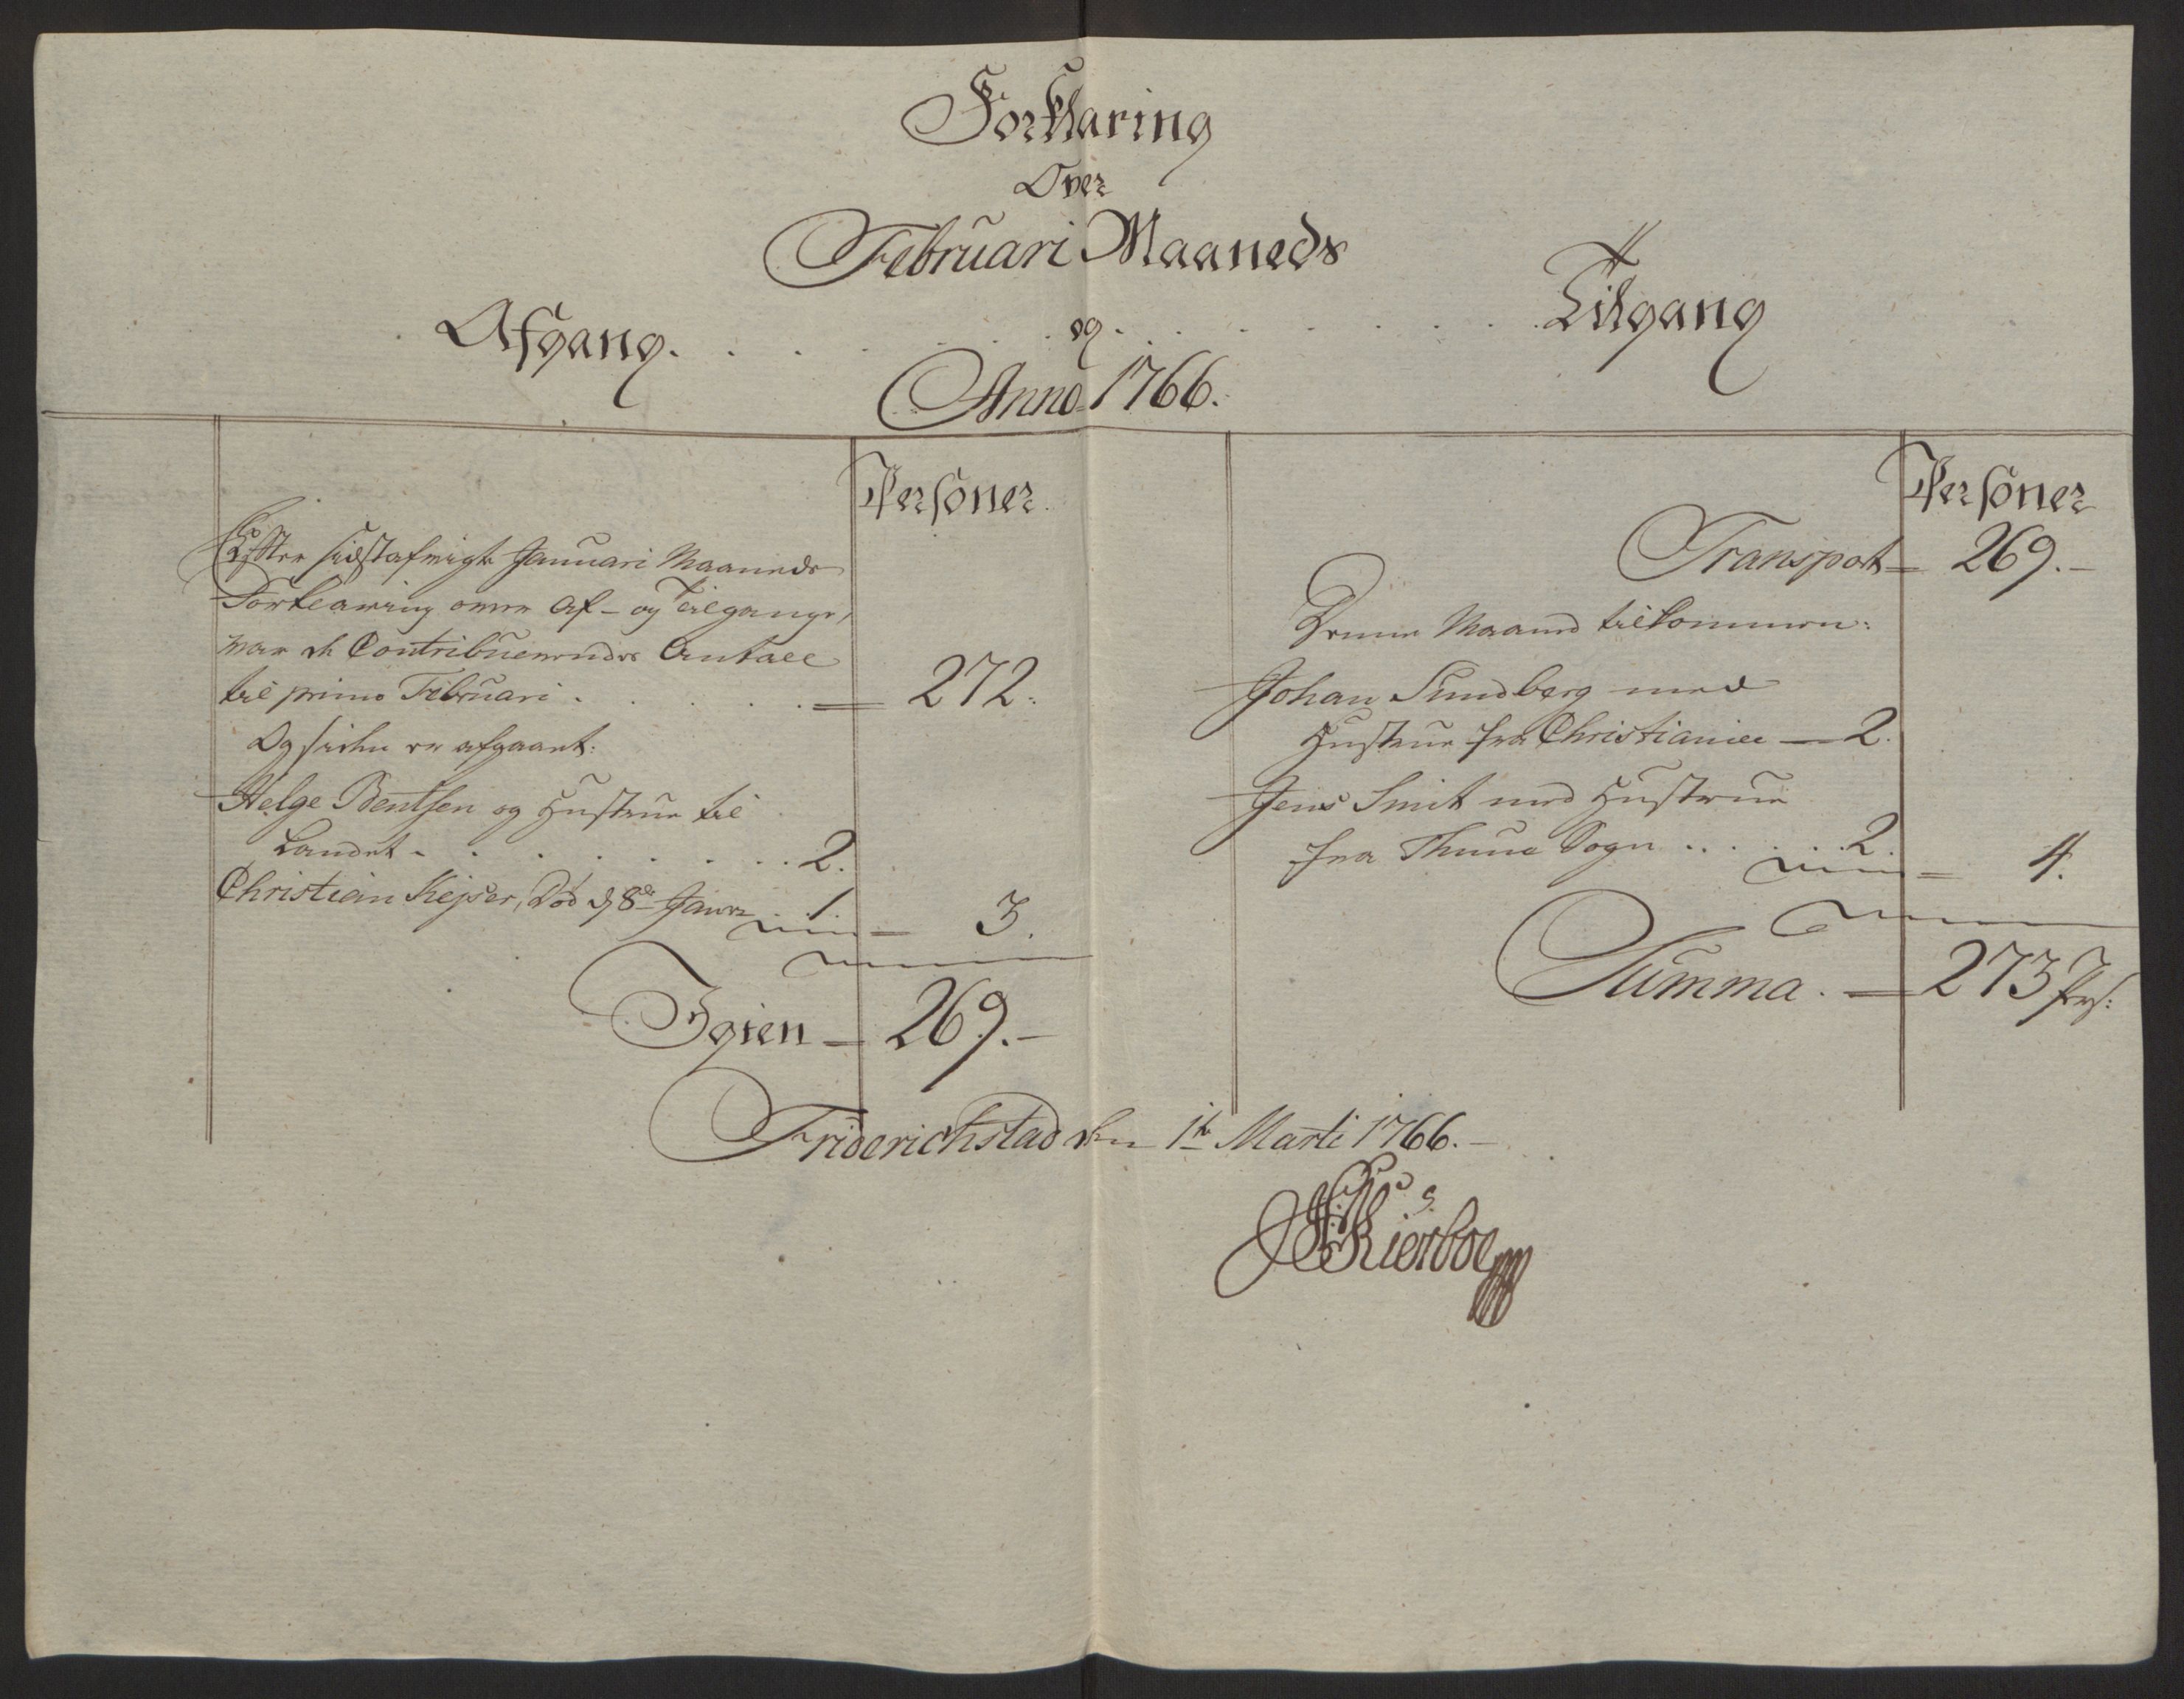 Forklaring
Over
Februari Maaneds
Afgang. . . . . . . og . . . . . . . Tilgang
Anno 1766.
Personer.
Efter sidstafvigte Januari Maaneds
Forklaring over Af- og Tilgange,
var de Contribuerendes Antall
til primo Februari . . . . . 272.
Og siden er afgaaet:
Helge Bentsen og Hustrue til
Landet . . . . . . . 2.
Christian Kejser, Død d. 8de Janr. . 1. 3.
Igien 269.
Personer
Transport 269.
Denne Maaned tilkommen:
Johan Sundberg med
Hustrue fra Christiania 2.
Jens Smit med Hustrue
fra Thune Sogn . . . . . 2. 4.
Summa. 273 Pers:
Friderichstad den 1te Marti 1766.
Kierboe